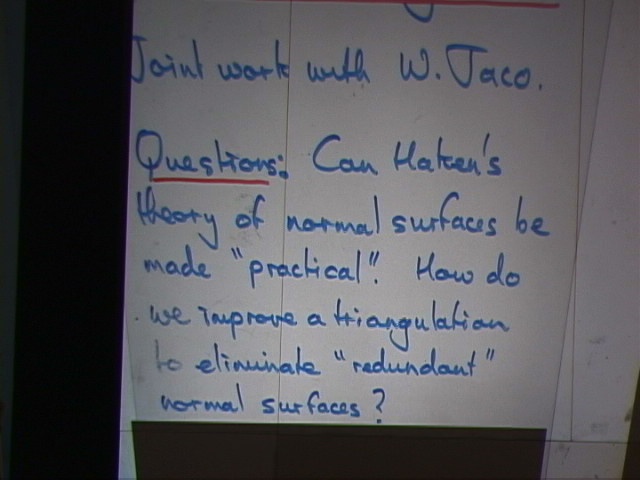 Joint work with W. Jaco.
Questions: Can Haken's
theory of normal surfaces be
made "practical". How do
we improve a triangulation
to eliminate "redundant"
normal surfaces?